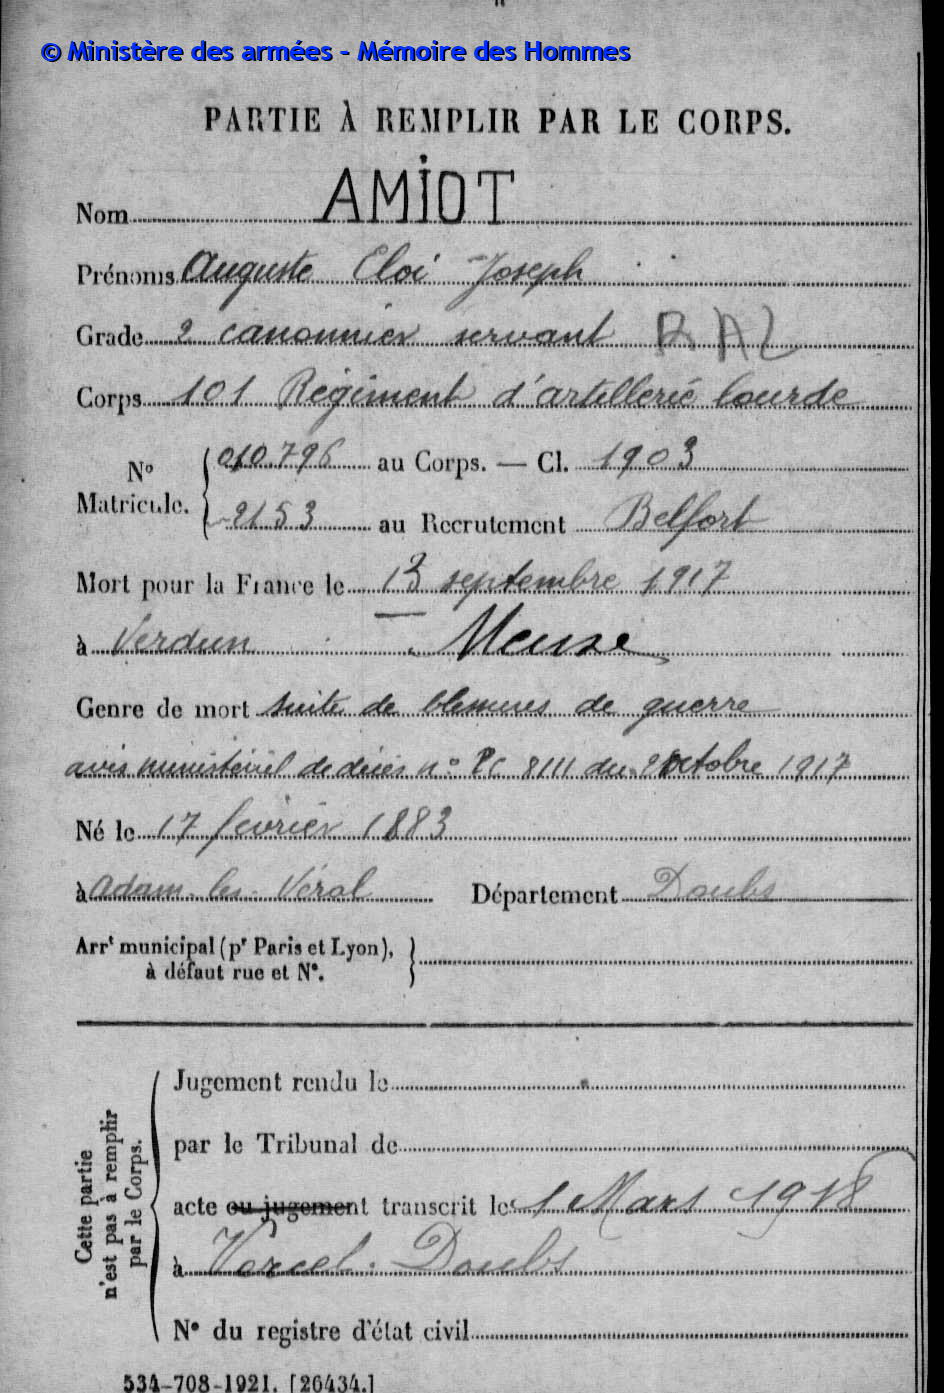 © Ministère des armées - Mémoire des Hommes
PARTIE À REMPLIR PAR LE CORPS.
Nom AMIOT
Prénoms Auguste Eloi Joseph
Grade 2 canonnier servant RAL
Corps 101 Régiment d'artillerie lourde
010.796 au Corps. — Cl. 1903
No Matricule.
2153 au Recrutement Belfort
Mort pour la France le 13 septembre 1917
à Verdun Meuse
Genre de mort suite de blessures de guerre
avis ministériel de décès n° 8111 du octobre 1917
Né le 17 février 1883
à Adam-les-Véral Département Doubs
Arrt municipal (pr Paris et Lyon),
à défaut rue et N°.
Jugement rendu le
par le Tribunal de
acte ou jugement transcrit le 1 Mars 1918
à Vercel. Doubs
N° du registre d'état civil
Cette partie
n'est pas à remplir
par le Corps.
534-708-1921. [26434.]